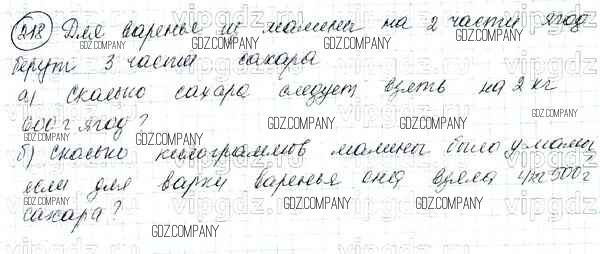 218 Для варенье из малины на 2 части ягод
берут 3 части сахара
а) сколько сахара следует взять на 2 кг
600 г ягод?
б) сколько килограммов малины было у мамы,
если для варки варенья она взяла 4 кг 500 г
сахара?
GDZ.COMPANY
vipgdz.ru